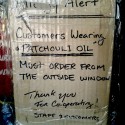 Alert
Customers Wearing
PATCHOULI OIL
MUST ORDER FROM
THE OUTSIDE WINDOW
Thank you
For Cooperating!
STAFF & CUSTOMERS